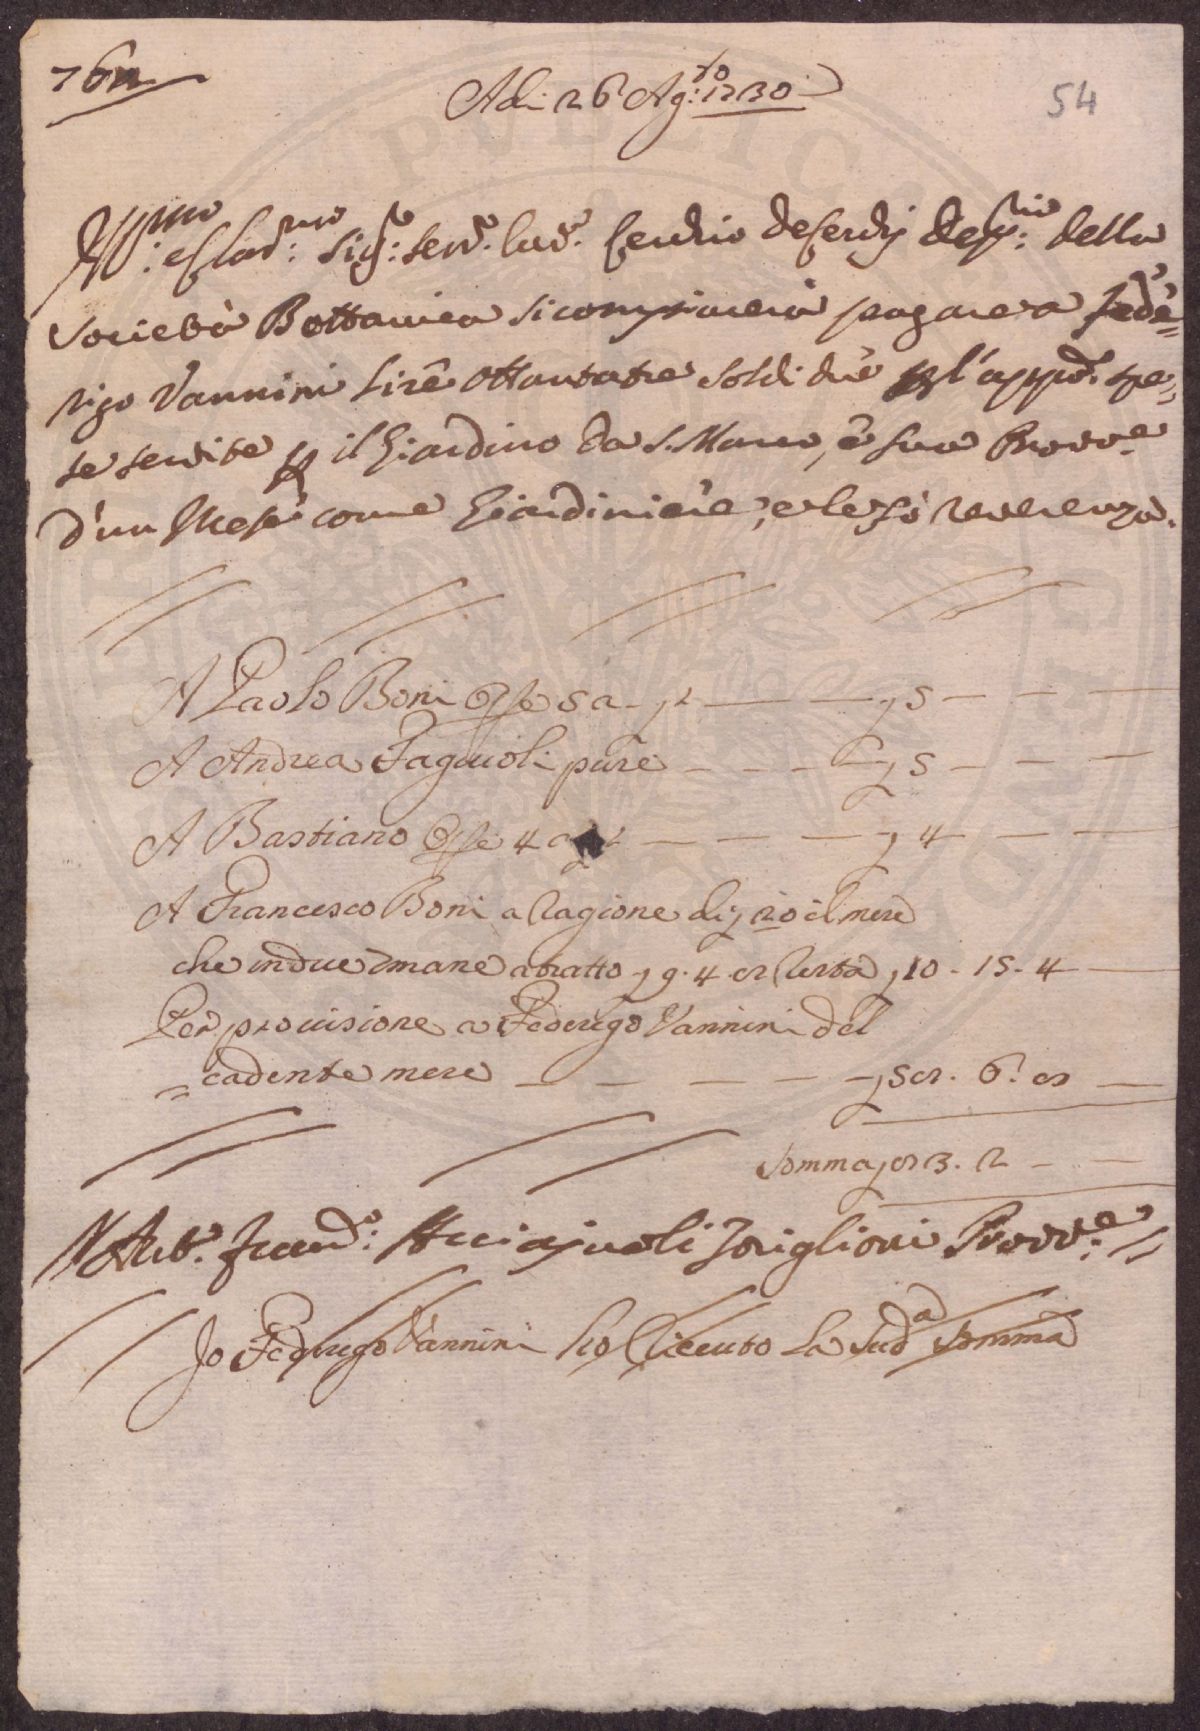 76
Adi 26 Ag:to 1730
54
Ill:mo e Clar:mo Sig:re Sen:re Cav:re della
Società Bottanica si compiacerà pagare a Fede=
rigo Vannini Lire Ottantatre soldi due p l'appo: spe=
se servite p il Giardino da S. Marco, e sua Provv:e
d'un Mese come Giardiniere, e le fò reverenza.
A Paolo Boni Opre 5 a — 5 — — —
A Andrea Fagiuoli pure — — — 5 — — —
A Bastiano Opre 4 — — — 4 — — —
A Francesco Boni a ragione di 20 il mese
che in due mane a tratto 9. 4 e resta 10 - 15. 4
Per provisione a Federigo Vannini del
= cadente mese — — — — — 58. 6. 8
Somma 83. 2 — —
Ant:o Franc:o Acciajuoli Provv:e
Io Federigo Vannini ho riceuto la sud:a somma